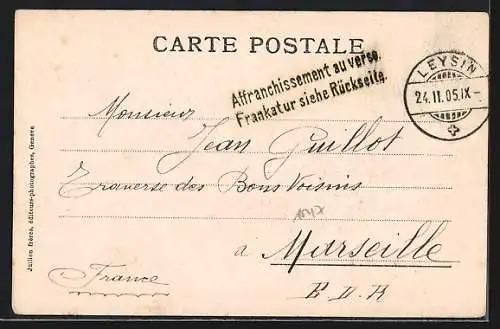 CARTE POSTALE
Affranchissement au verso.
Frankatur siehe Rückseite.
LEYSIN
24.II.05.IX-
Monsieur
Jean Guillot
Traverse des Bons Voisins
à Marseille
France
Jullien frères, éditeurs-photographes, Genève